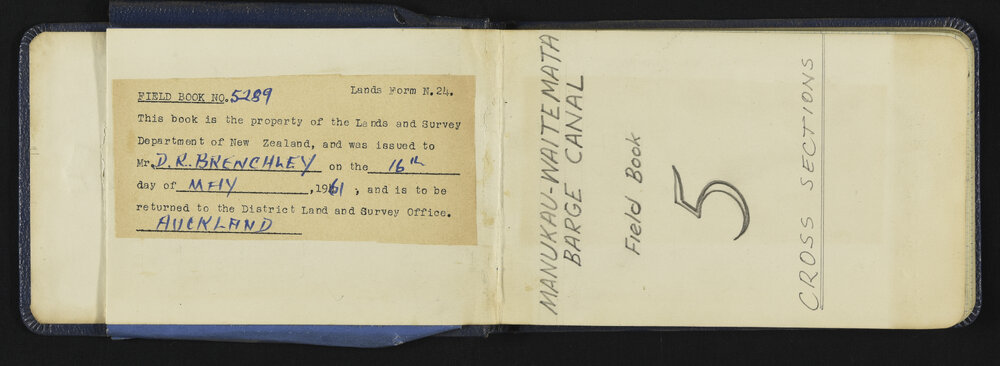 FIELD BOOK NO. 5289 Lands Form N.24.
This book is the property of the Lands and Survey
Department of New Zealand, and was issued to
Mr. D. R. BRENCHLEY on the 16th
day of MAY ,1961 , and is to be
returned to the District Land and Survey Office.
AUCKLAND
MANUKAU-WAITEMATA
BARGE CANAL
Field Book
5
CROSS SECTIONS